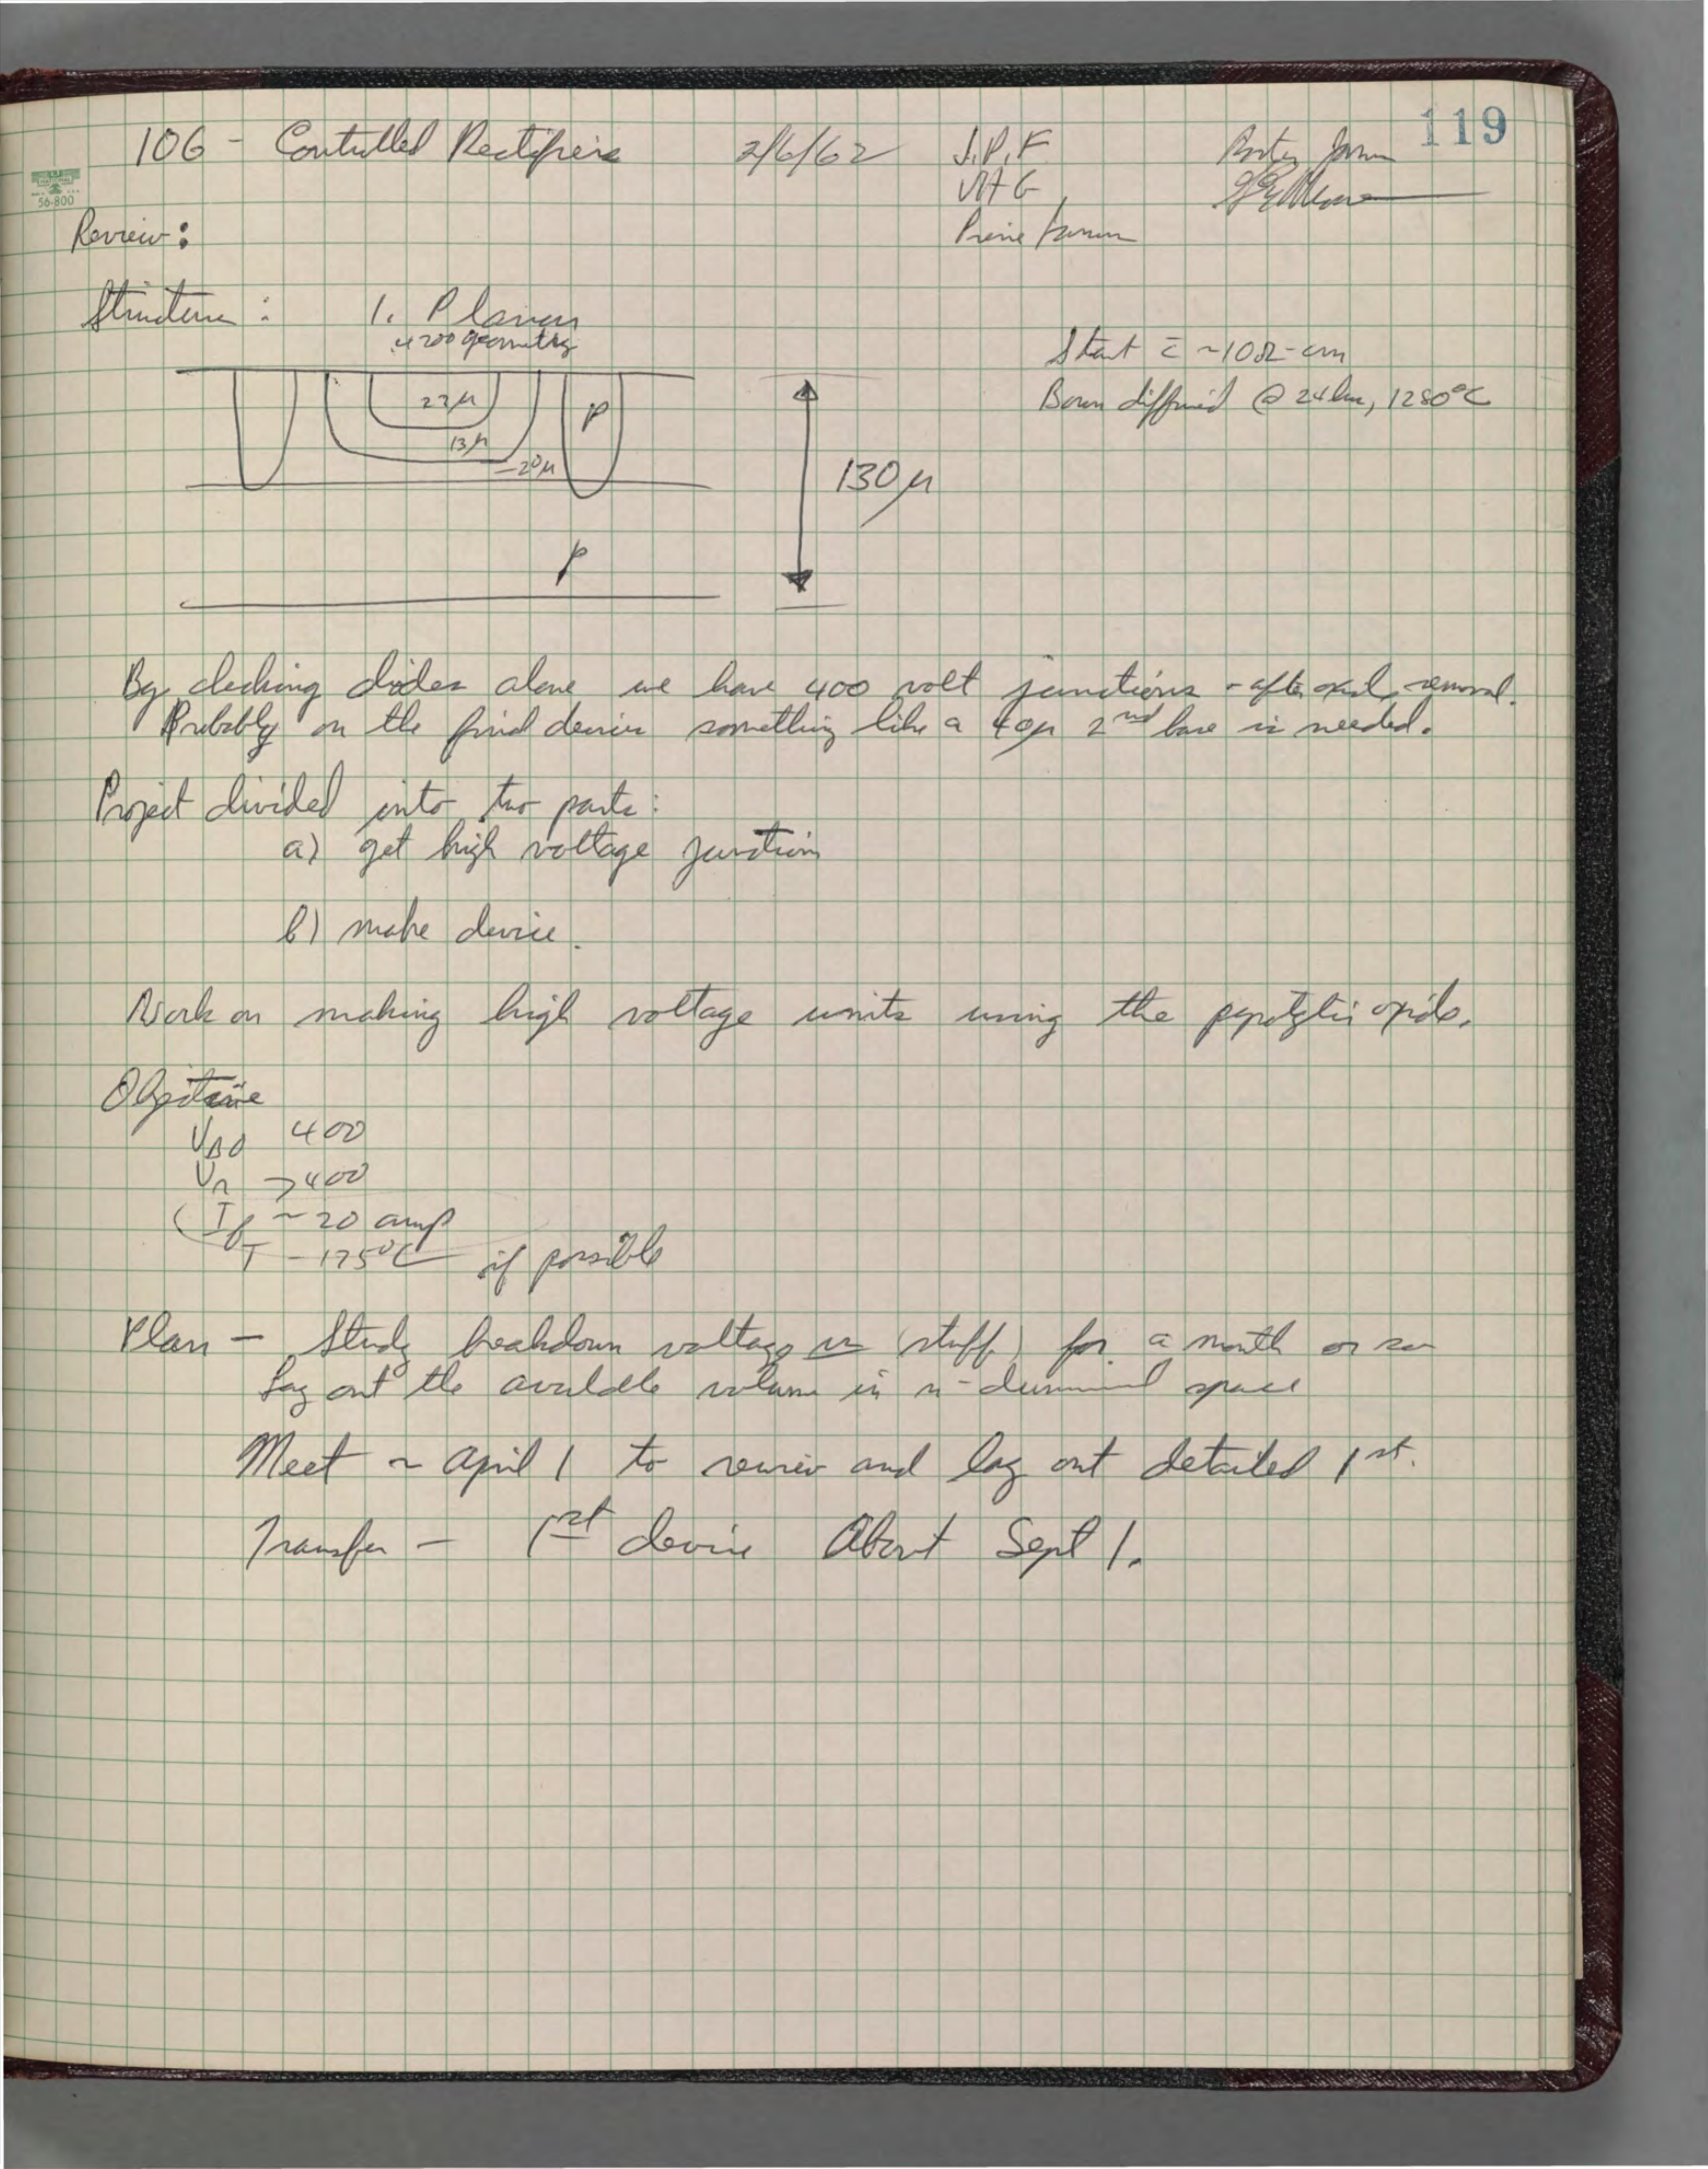 119
106 - Controlled Rectifiers 2/6/62 J.P.F
VHG
56-800
Review:
Structure: 1. Planar
4200 geometry
Start c̄ ~10Ω-cm
Boron diffused @ 24 hrs, 1280°C
23μ
P
13μ
-20μ
130μ
p
By checking diodes alone we have 400 volt junctions - after oxide removal.
Probably on the final device something like a 40μ 2nd base is needed.
Project divided into two parts:
a) get high voltage junction
b) make device.
Work on making high voltage units using the pyrolytic oxide.
Objective
VBO 400
VR >400
If ~20 amp
T - 175°C if possible
Plan - Study breakdown voltage vs (stuff) for a month or so
Lay out the available volume in n-dimensional space
Meet ~ April 1 to review and lay out detailed 1st.
Transfer - 1st device About Sept 1.